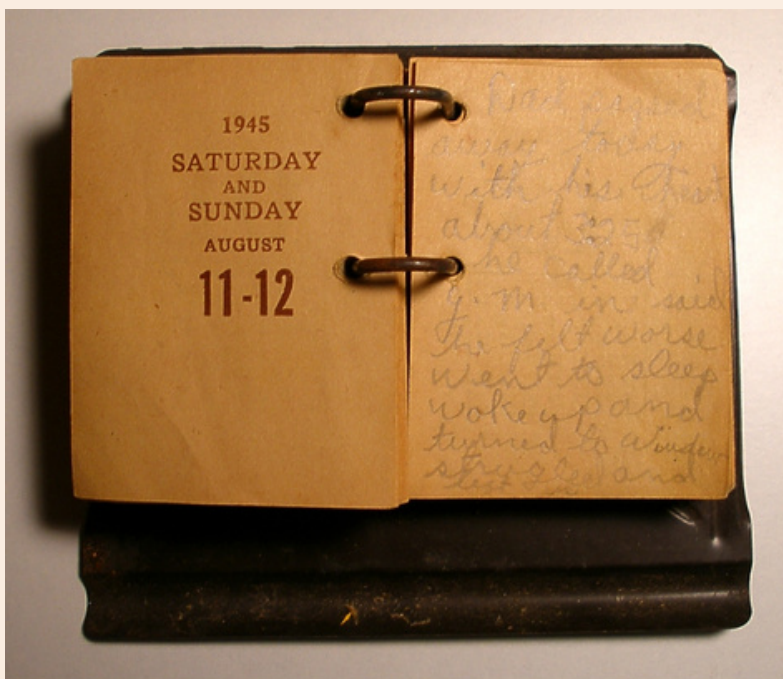 1945
SATURDAY
AND
SUNDAY
AUGUST
11-12
Dad passed
away today
with his
about
he called
G. M in said
he felt worse
went to sleep
woke up and
turned to window
struggle and